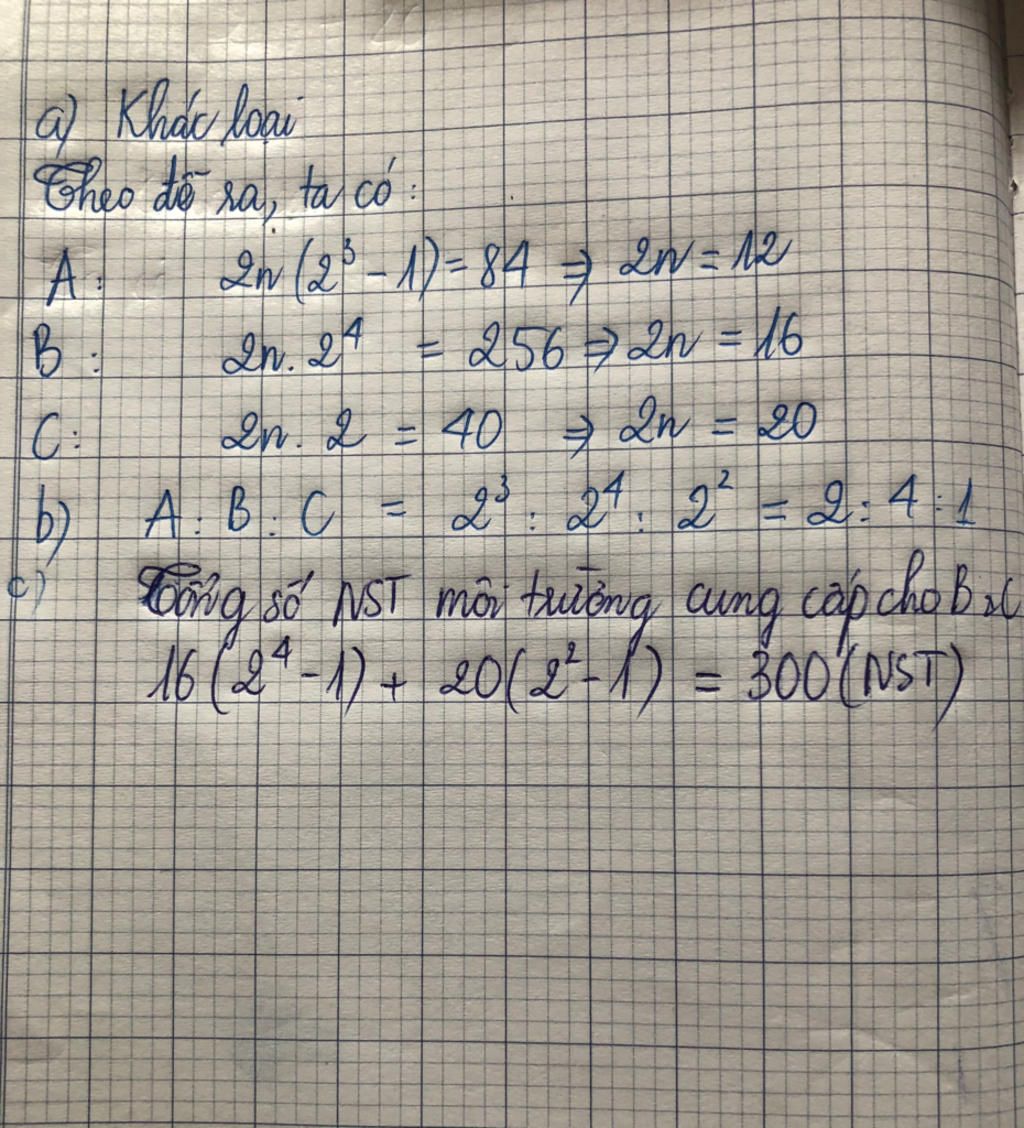 a) Khác loại
Theo đề ra, ta có:
A: 2n (2³ - 1) = 84 ⇒ 2n = 12
B: 2n. 2⁴ = 256 ⇒ 2n = 16
C: 2n. 2 = 40 ⇒ 2n = 20
b) A : B : C = 2³ : 2⁴ : 2² = 2 : 4 : 1
c) Tổng số NST môi trường cung cấp cho B, C
16 (2⁴ - 1) + 20 (2² - 1) = 300 (NST)